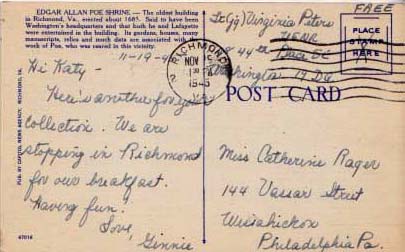 EDGAR ALLAN POE SHRINE — The oldest building
in Richmond, Va., erected about 1685. Said to have been
Washington's headquarters and that both he and Lafayette
were entertained in the building. Its gardens, houses, many
manuscripts, relics and much data are associated with the
work of Poe, who was reared in this vicinity.
Hi Katy - 11-19-4
Here's another for your
collection. We are
stopping in Richmond
for our breakfast.
Having fun.
Love,
Ginnie
PUB. BY CAPITOL NEWS AGENCY, RICHMOND, VA.
47016
RICHMOND
NOV
1945
FREE
Lt(jg) Virginia Peters
USNR
44th Place SE
Washington 19 D.C.
PLACE
STAMP
HERE
POST CARD
Miss Catherine Rager
144 Vassar Street
Wissahickon
Philadelphia Pa.